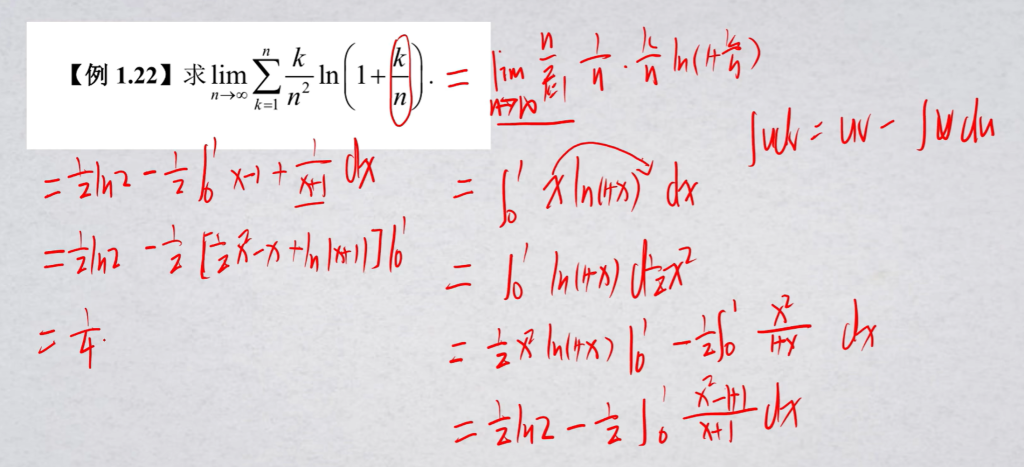 【例 1.22】求 lim_{n→∞} ∑_{k=1}^{n} k/n² ln(1+k/n). = lim_{n→∞} ∑_{k=1}^{n} 1/n · k/n ln(1+k/n)
∫udv = uv - ∫vdu
= ∫₀¹ x ln(1+x) dx
= ∫₀¹ ln(1+x) d½x²
= ½x² ln(1+x) |₀¹ - ½∫₀¹ x²/(1+x) dx
= ½ln2 - ½ ∫₀¹ (x²-1+1)/(x+1) dx
= ½ln2 - ½∫₀¹ x-1 + 1/(x+1) dx
= ½ln2 - ½ [½x²-x+ln|x+1|] |₀¹
= ¼.